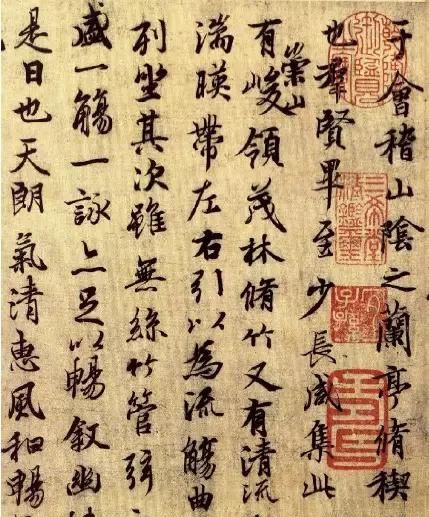 于會稽山陰之蘭亭脩稧
也羣賢畢至少長咸集此
崇山
有峻領茂林脩竹又有清流
湍暎帶左右引以為流觴曲
列坐其次雖無絲竹管弦
盛一觴一詠亦足以暢叙幽
是日也天朗氣清惠風和暢
三希堂精鑑璽
宜子孫